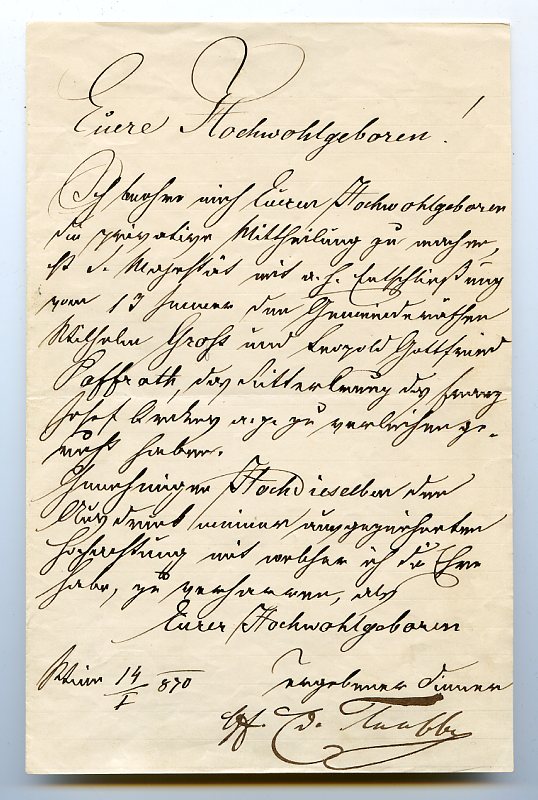 Euere Hochwohlgeboren!
Ich beehre mich Euerer Hochwohlgeboren
die privative Mittheilung zu machen,
daß S. Majestät mit a. h. Entschließung
vom 13 Jänner den Gemeinderäthen
Wilhelm Groß und Leopold Gottfried
Paffrath, das Ritterkreuz des Franz
Josef Ordens a. g. zu verleihen ge-
ruht haben.
Genehmigen Hochdieselben den
Ausdruck meiner ausgezeichneten
Hochachtung mit welcher ich die Ehre
habe, zu verharren, als
Eurer Hochwohlgeboren
Wien 14/I 870
ergebener Diener